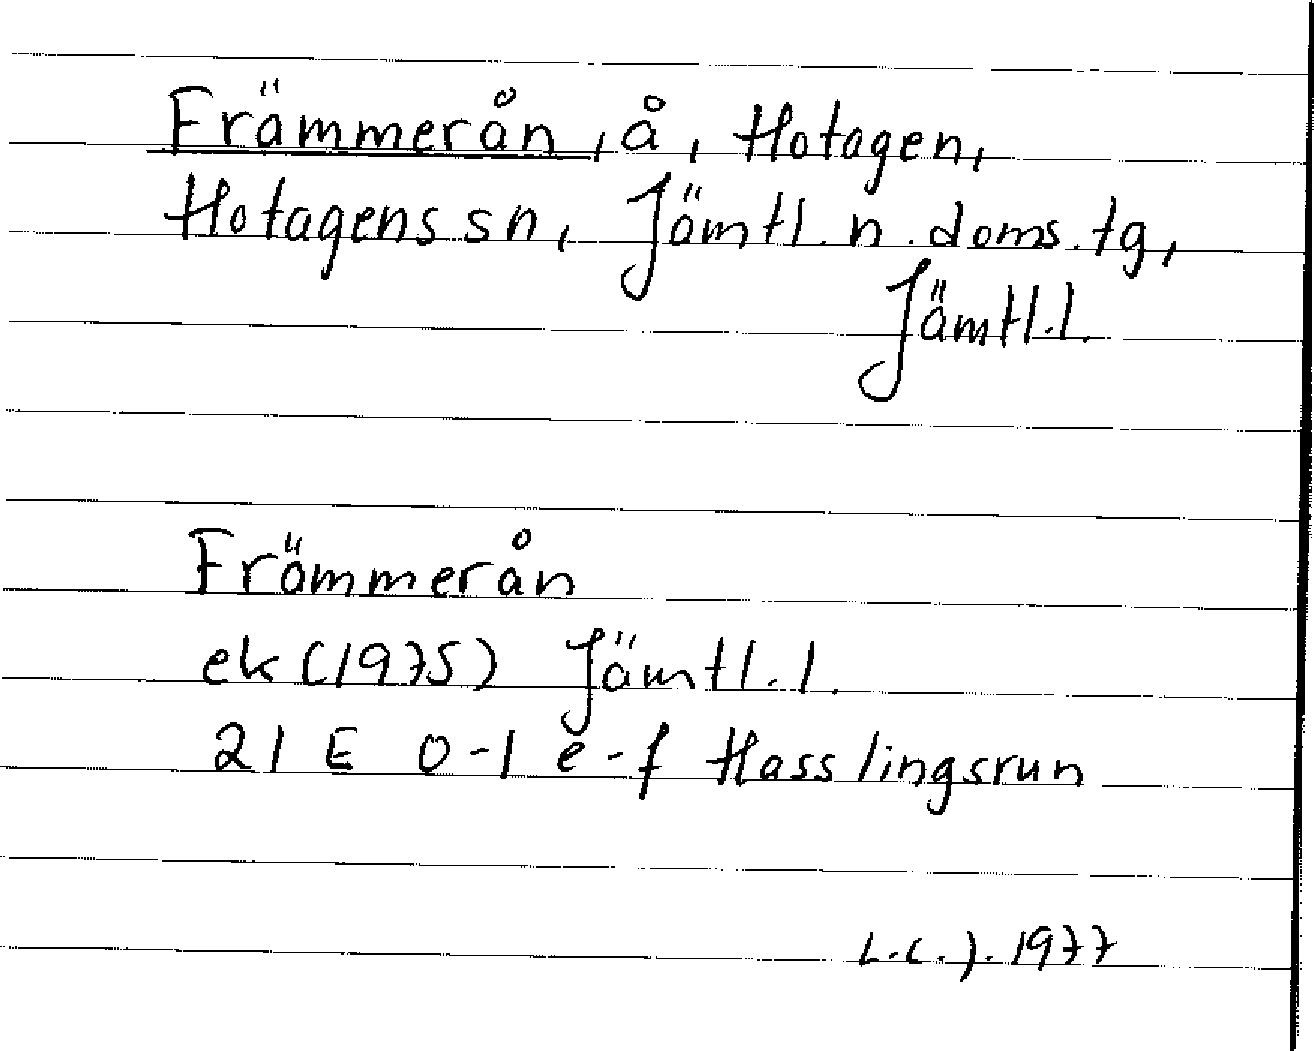 Främmerån, å, Hotagen,
Hotagens sn, Jämtl. n. doms. tg,
Jämtl. l.
Främmerån
ek (1975) Jämtl. l.
21 E 0-1 e-f Hasslingsrun
L.C.J. 1977